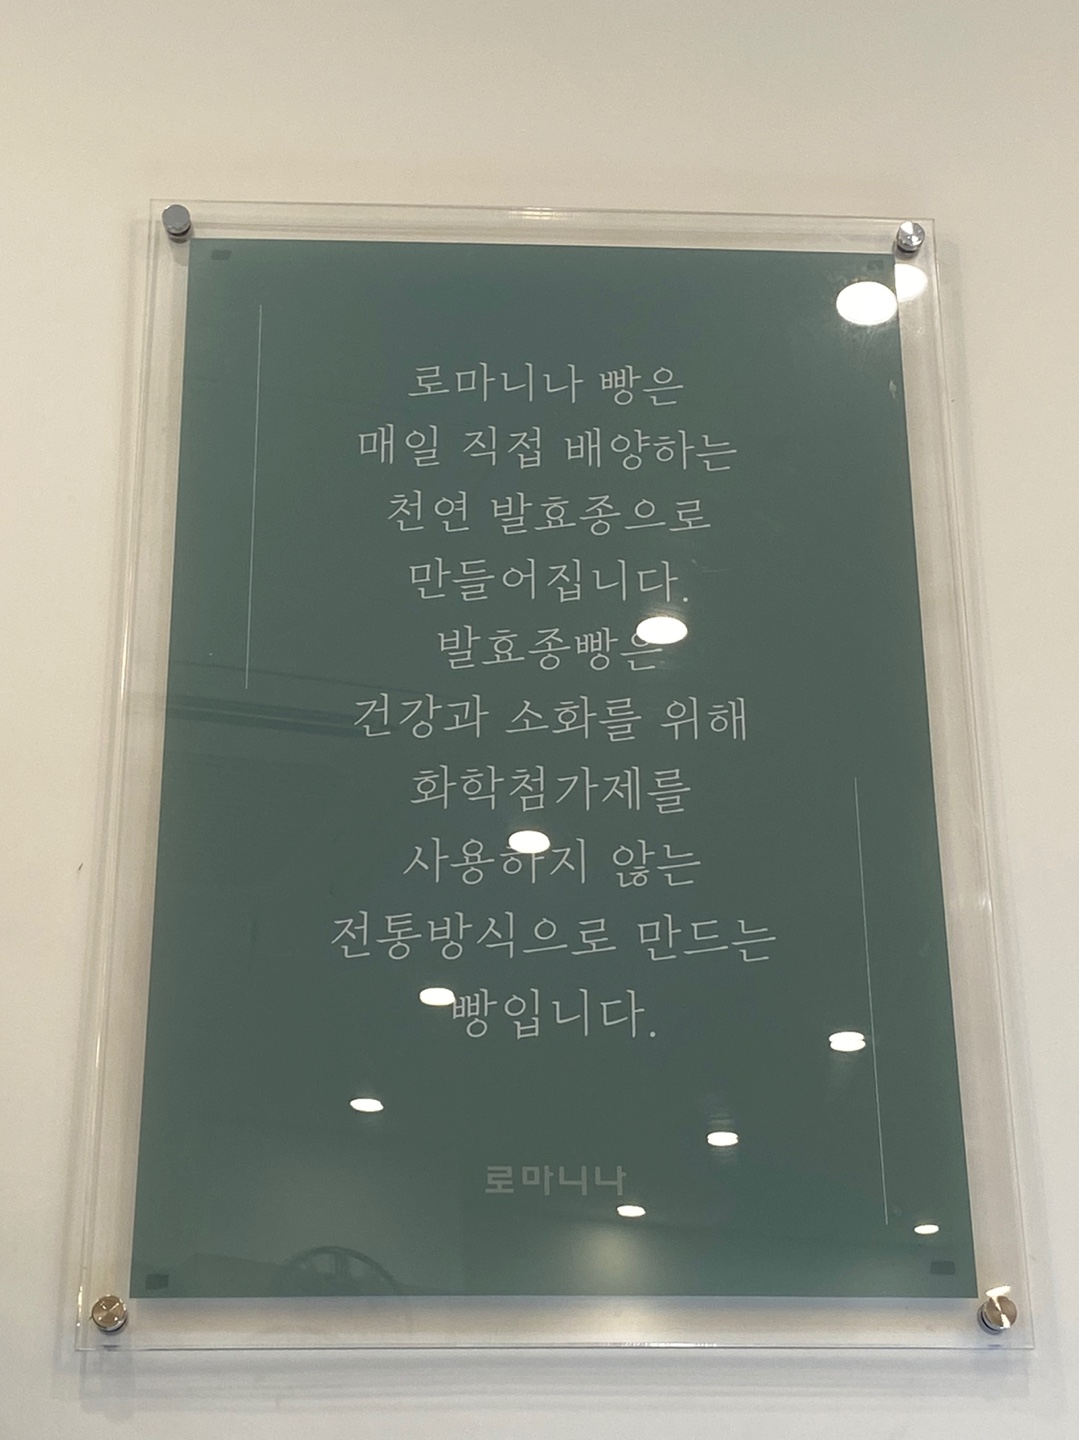 로마니나 빵은
매일 직접 배양하는
천연 발효종으로
만들어집니다.
발효종빵은
건강과 소화를 위해
화학첨가제를
사용하지 않는
전통방식으로 만드는
빵입니다.
로마니나